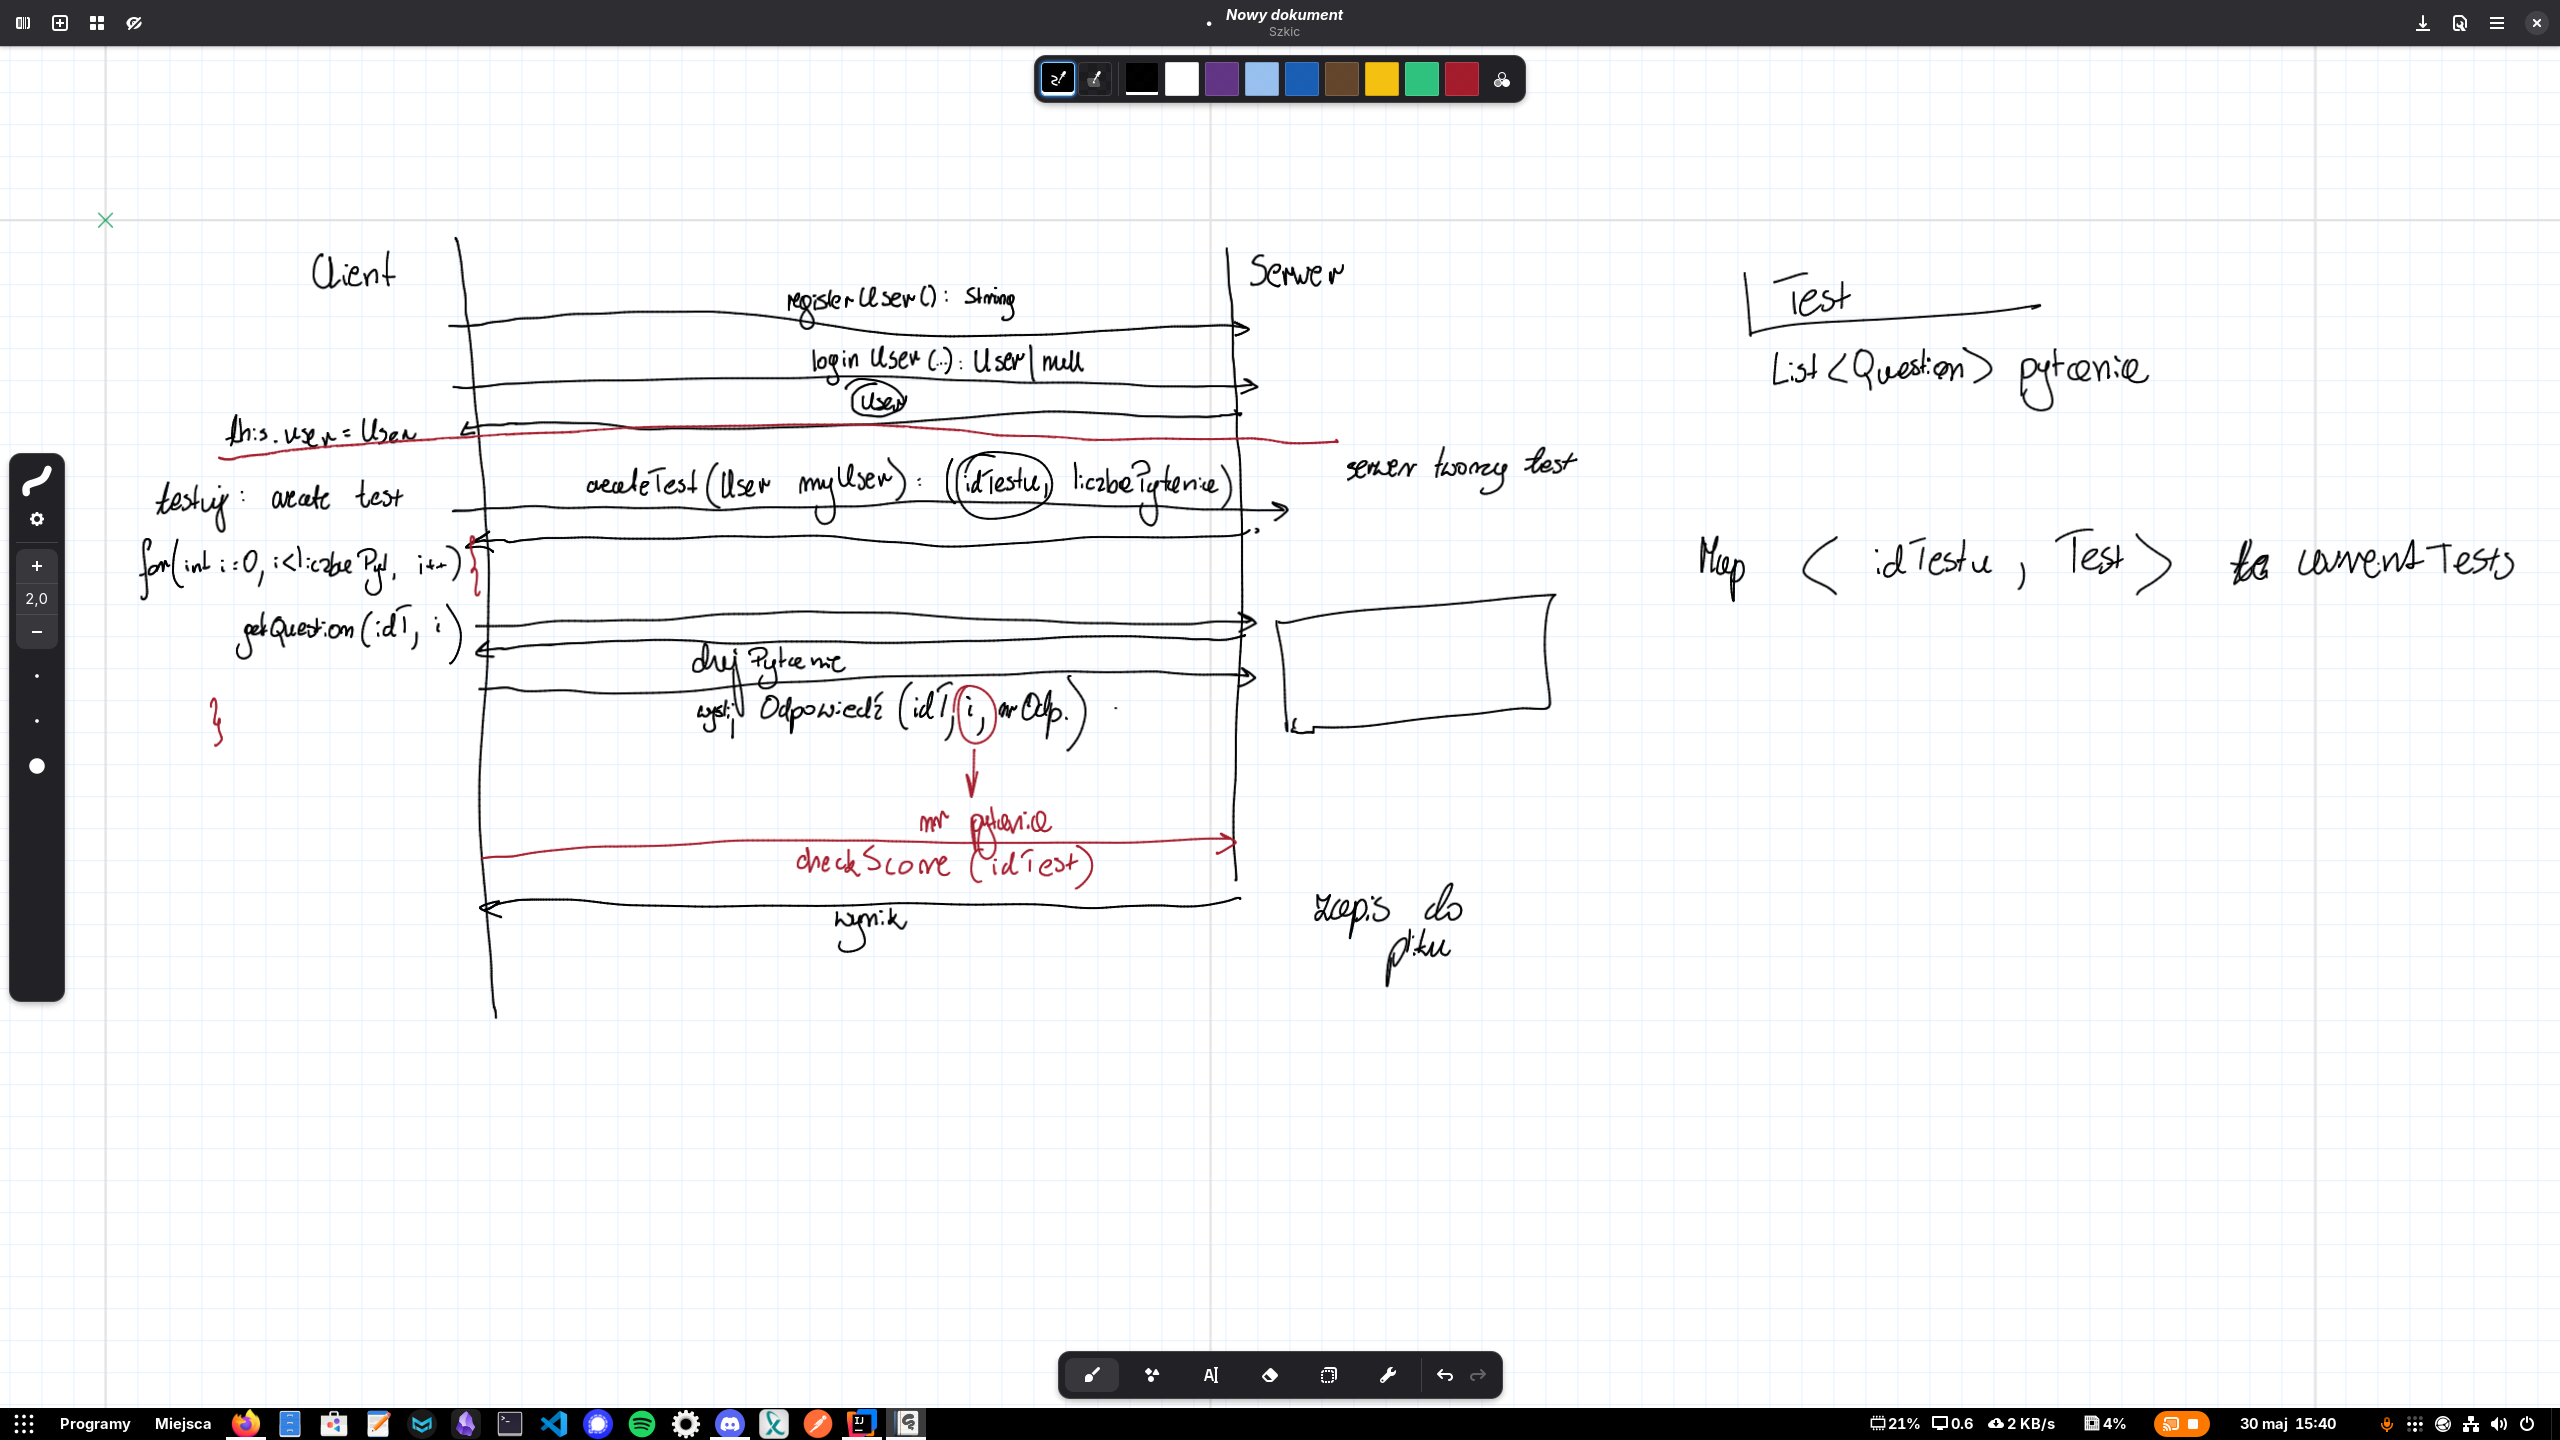 Nowy dokument
Szkic
Client
Serwer
registerUser(): String
login User(...): User | null
User
this.user = User
serwer tworzy test
testuj: create test
createTest(User myUser): (idTestu, liczbaPytania)
for(int i=0, i<liczbaPyt, i++) {
getQuestion(idT, i)
daj Pytanie
wyslij Odpowiedź (idT, i, nrOdp.)
}
nr pytania
checkScore (idTest)
wynik
zapis do
pliku
Test
List<Question> pytania
Map < idTestu, Test > currentTests
2,0
Programy
Miejsca
21%
0.6
2 KB/s
4%
30 maj 15:40